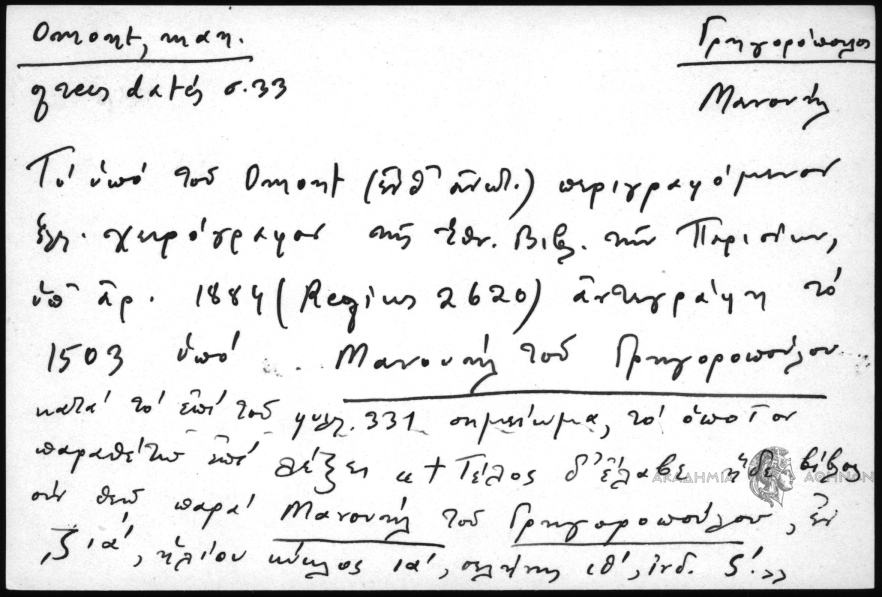 Omont, man.
grecs datés σ.33
Γρηγορόπουλος
Μανουήλ
Τό ὑπό τοῦ Omont (ἔνθ' ἀνωτ.) περιγραφόμενον
ἑλλ. χειρόγραφον τῆς Ἐθν. Βιβλ. τῶν Παρισίων,
ὑπ' ἀρ. 1884 (Regius 2620) ἀντεγράφη τό
1503 ὑπό Μανουήλ τοῦ Γρηγοροπούλου
κατά τό ἐπί τοῦ φυλλ. 331 σημείωμα, τό ὁποῖον
παραθέτω ἐπί λέξει «† Τέλος δ' ἔλαβε ἥδε βίβλος
σύν θεῷ παρά Μανουήλ τοῦ Γρηγοροπούλου, ἐν
͵ζια', ἡλίου κύκλος ια', σελήνης ιθ', ἰνδ. ς'.»
ΑΚΑΔΗΜΙΑ ΑΘΗΝΩΝ